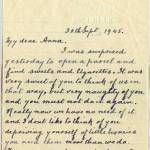 30th Sept. 1945.
My dear Anna,
I was surprised
yesterday to open a parcel and
find sweets and cigarettes. It was
very sweet of you to think of us in
that way, but very naughty of you
and you must not do it again.
Really now we have no need of it
and I don't like to think of you
depriving yourself of little luxuries
you need them more than we do.